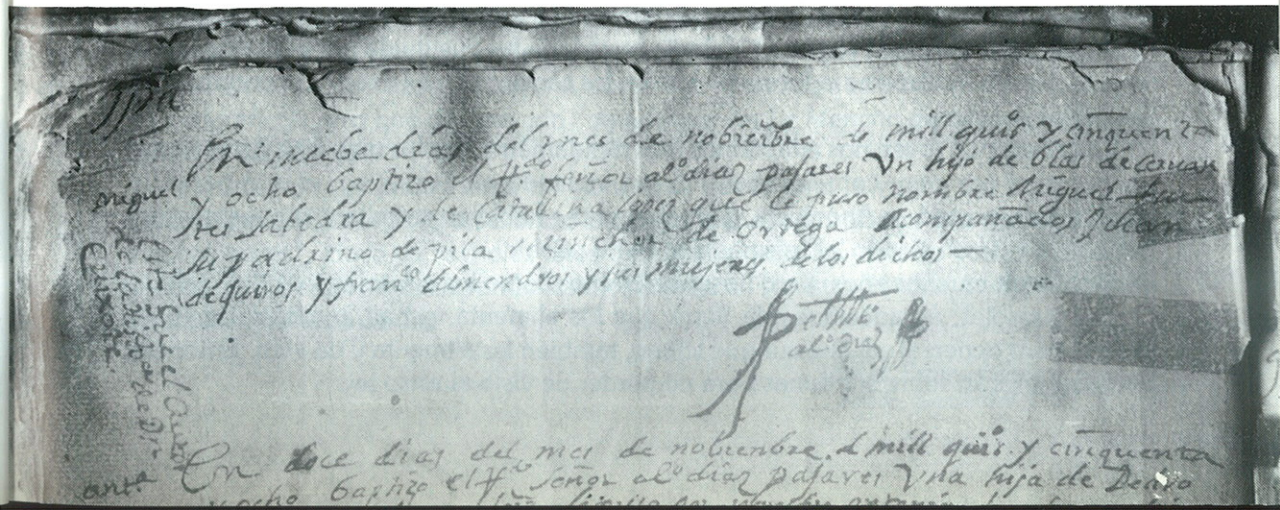 En nuebe dias del mes de nobiẽbre de mill quiº y cinquenta
y ocho baptizo el Rdo señor alº diaz pajares Un hijo de blas de ceruan
tes sabedra y de Catalina lopez que le puso nombre Miguel fue
su padrino de pila Melchor de Ortega acompañados Juan
de quiros y franco almendros y sus mujeres de los dichos
Miguel
Este fue el Autor
de la Historia de Dn
Quixote.
alº diaz
En doce dias del mes de nobienbre d mill quiº y cinquenta
y ocho baptizo el Rdo señor alº diaz pajares Una hija de Pedro